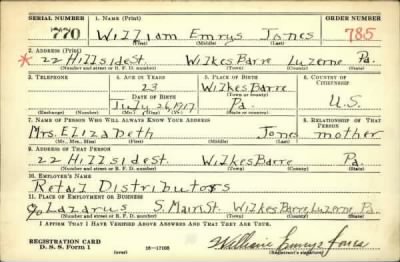 SERIAL NUMBER 1. NAME (Print) ORDER NUMBER
770 William Emrys Jones 785
(First) (Middle) (Last)
2. ADDRESS (Print)
* 22 Hillside St. Wilkes Barre Luzerne Pa.
(Number and street or R. F. D. number) (Town) (County) (State)
3. TELEPHONE 4. AGE IN YEARS 5. PLACE OF BIRTH 6. COUNTRY OF CITIZENSHIP
23 Wilkes Barre
(Town or county)
DATE OF BIRTH
July 26, 1917 Pa. U.S.
(Exchange) (Number) (Mo.) (Day) (Yr.) (State or country)
7. NAME OF PERSON WHO WILL ALWAYS KNOW YOUR ADDRESS 8. RELATIONSHIP OF THAT PERSON
Mrs. Elizabeth Jones mother
(Mr., Mrs., Miss) (First) (Middle) (Last)
9. ADDRESS OF THAT PERSON
22 Hillside st. Wilkes Barre Pa
(Number and street or R. F. D. number) (Town) (County) (State)
10. EMPLOYER'S NAME
Retail Distributors
11. PLACE OF EMPLOYMENT OR BUSINESS
c/o Lazarus S. Main St. Wilkes Barre, Luzerne Pa.
(Number and street or R. F. D. number) (Town) (County) (State)
I AFFIRM THAT I HAVE VERIFIED ABOVE ANSWERS AND THAT THEY ARE TRUE.
REGISTRATION CARD
D. S. S. Form 1 (over) 16—17105 William Emrys Jones
(Registrant's signature)